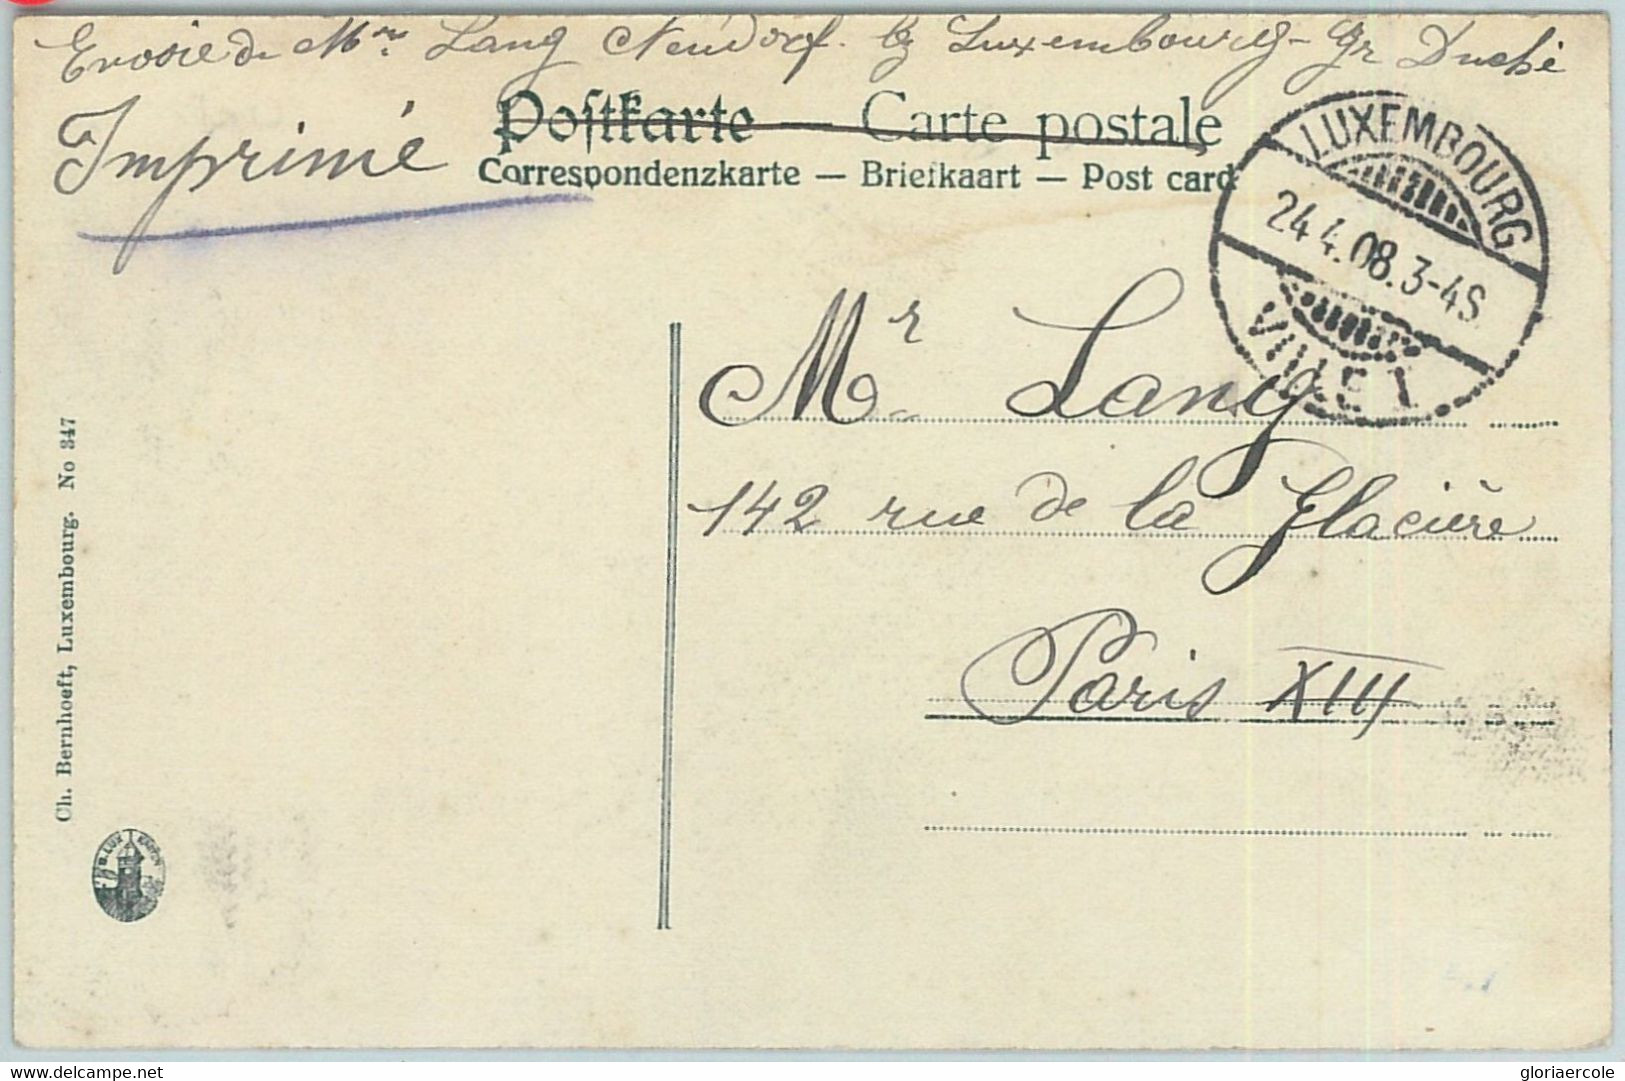 Envoie de Mme Lang Neudorf. bg Luxembourg - Gr Duché
Imprimé
Postkarte — Carte postale
Correspondenzkarte — Briefkaart — Post card
LUXEMBOURG
24.4.08.3-4S
VILLE 1
Mr Lang
142 rue de la Glacière
Paris XIII
Ch. Bernhoeft, Luxembourg. No 347
www.delcampe.net
gloriaercole